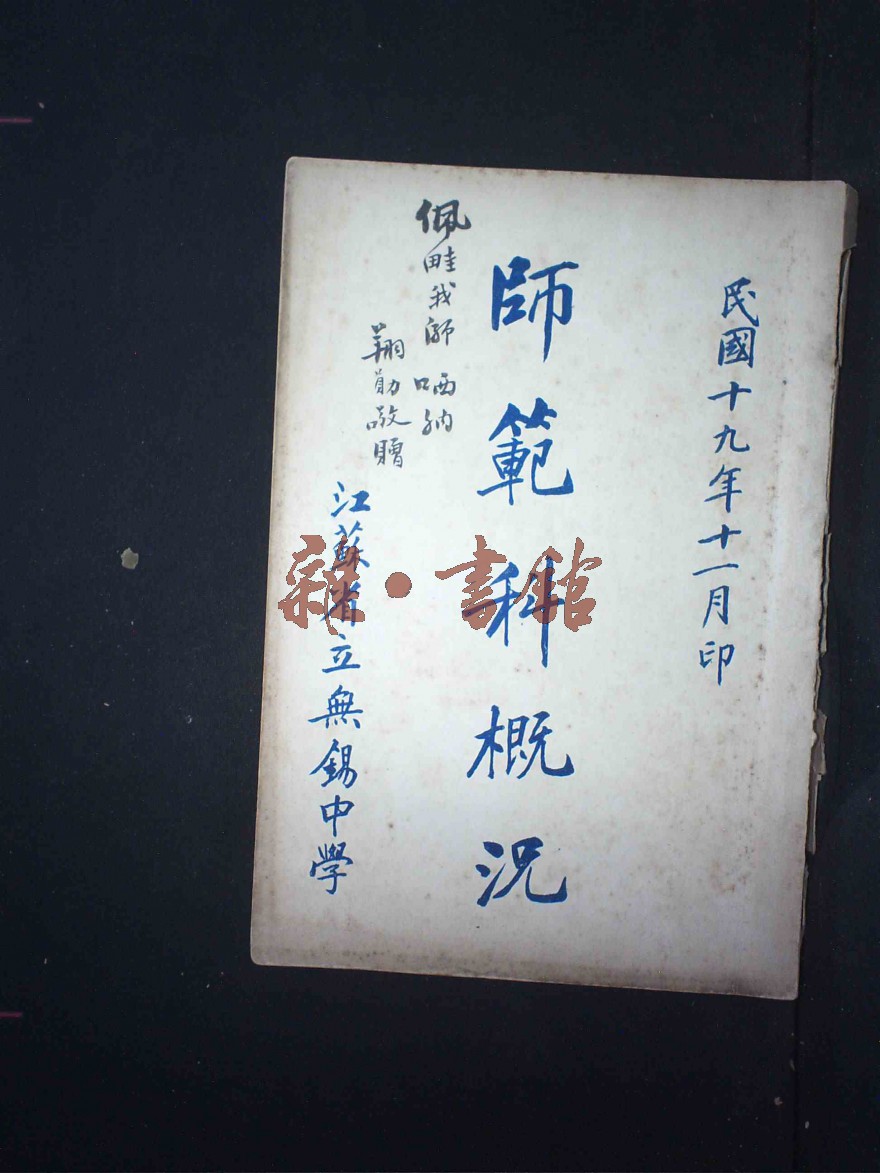 民國十九年十一月印
師範科概況
佩畦我師 哂納
翔勛敬贈
江蘇省立無錫中學
雜·書館